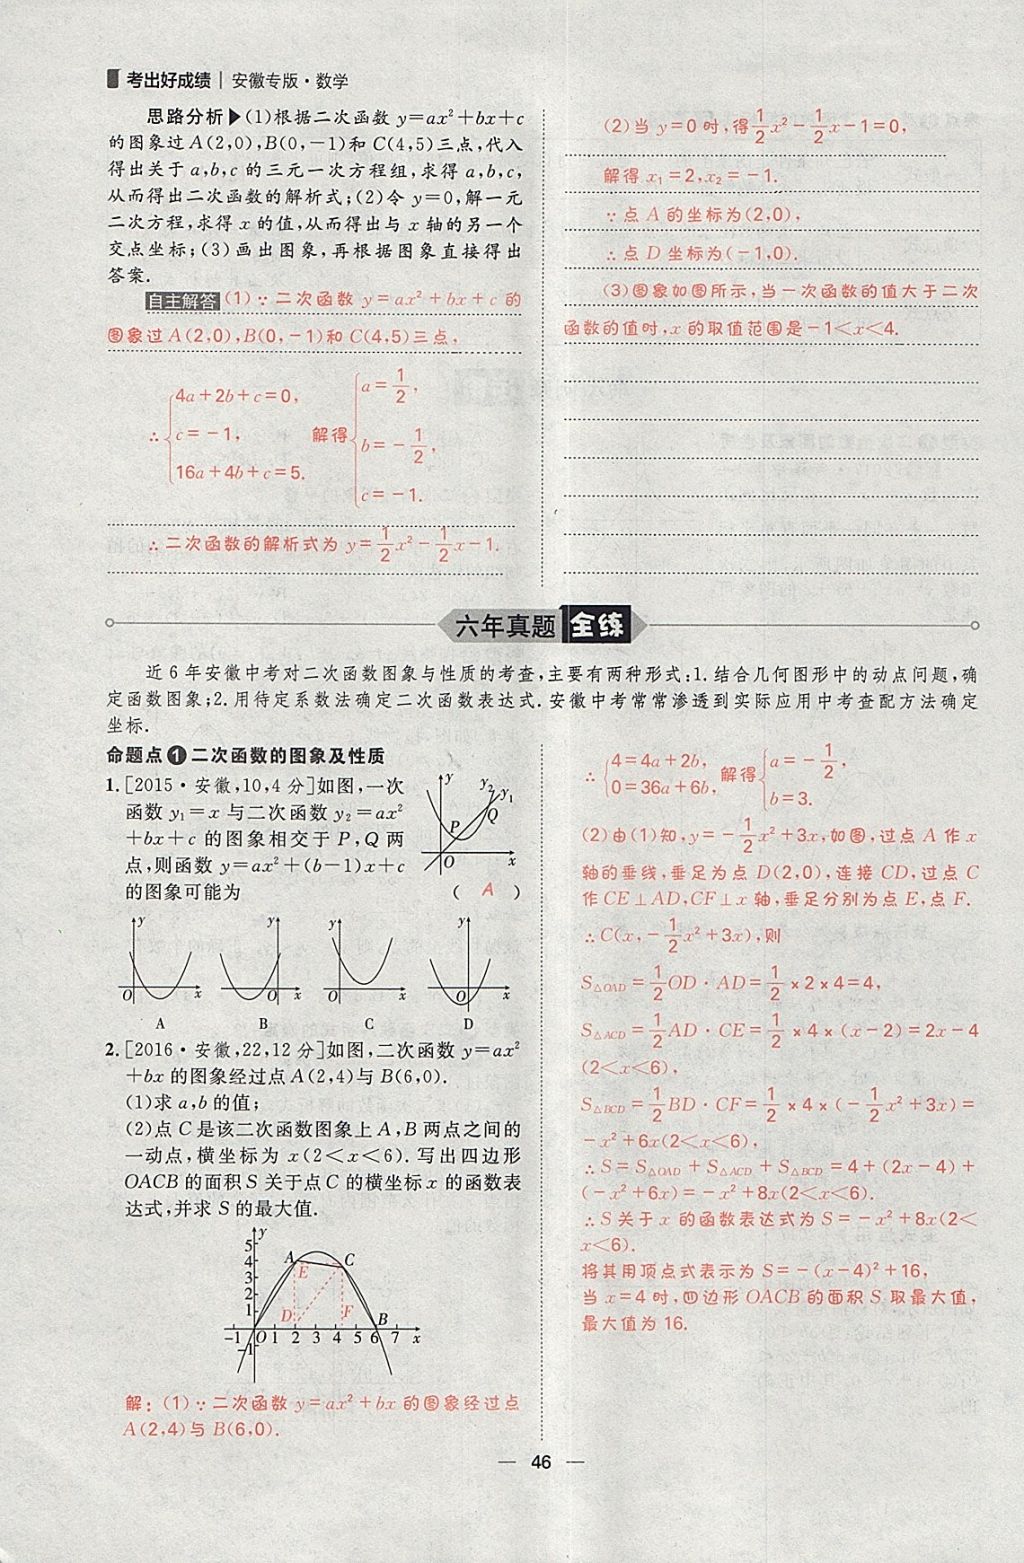 考出好成绩 | 安徽专版·数学
思路分析▶(1)根据二次函数 y=ax²+bx+c
的图象过 A(2,0),B(0,-1)和 C(4,5)三点,代入
得出关于 a,b,c 的三元一次方程组,求得 a,b,c,
从而得出二次函数的解析式;(2)令 y=0,解一元
二次方程,求得 x 的值,从而得出与 x 轴的另一个
交点坐标;(3)画出图象,再根据图象直接得出
答案.
自主解答 (1)∵二次函数 y=ax²+bx+c 的
图象过 A(2,0),B(0,-1)和 C(4,5)三点,
∴{4a+2b+c=0, c=-1, 16a+4b+c=5. 解得{a=1/2, b=-1/2, c=-1.
∴二次函数的解析式为 y=1/2x²-1/2x-1.
(2)当 y=0 时,得1/2x²-1/2x-1=0,
解得 x₁=2,x₂=-1.
∵点 A 的坐标为(2,0),
∴点 D 坐标为(-1,0).
(3)图象如图所示,当一次函数的值大于二次
函数的值时,x 的取值范围是-1<x<4.
六年真题 全练
近 6 年安徽中考对二次函数图象与性质的考查,主要有两种形式:1. 结合几何图形中的动点问题,确
定函数图象;2. 用待定系数法确定二次函数表达式. 安徽中考常常渗透到实际应用中考查配方法确定
坐标.
命题点❶二次函数的图象及性质
1. [2015·安徽,10,4 分]如图,一次
函数 y₁=x 与二次函数 y₂=ax²
+bx+c 的图象相交于 P,Q 两
点,则函数 y=ax²+(b-1)x+c
的图象可能为 ( A )
y y₂ y₁ P Q O x
y O x
y O x
y O x
y O x
A B C D
2. [2016·安徽,22,12 分]如图,二次函数 y=ax²
+bx 的图象经过点 A(2,4)与 B(6,0).
(1)求 a,b 的值;
(2)点 C 是该二次函数图象上 A,B 两点之间的
一动点,横坐标为 x(2<x<6). 写出四边形
OACB 的面积 S 关于点 C 的横坐标 x 的函数表
达式,并求 S 的最大值.
y
5
4 A C
3 E
2
1 D F B
-1 O 1 2 3 4 5 6 7 x
-1
解:(1)∵二次函数 y=ax²+bx 的图象经过点
A(2,4)与 B(6,0).
∴{4=4a+2b, 0=36a+6b, 解得{a=-1/2, b=3.
(2)由(1)知,y=-1/2x²+3x,如图,过点 A 作 x
轴的垂线,垂足为点 D(2,0),连接 CD,过点 C
作 CE⊥AD,CF⊥x 轴,垂足分别为点 E,点 F.
∴C(x,-1/2x²+3x),则
S△OAD=1/2OD·AD=1/2×2×4=4,
S△ACD=1/2AD·CE=1/2×4×(x-2)=2x-4
(2<x<6),
S△BCD=1/2BD·CF=1/2×4×(-1/2x²+3x)=
-x²+6x(2<x<6),
∴S=S△OAD+S△ACD+S△BCD=4+(2x-4)+
(-x²+6x)=-x²+8x(2<x<6).
∴S 关于 x 的函数表达式为 S=-x²+8x(2<
x<6).
将其用顶点式表示为 S=-(x-4)²+16,
当 x=4 时,四边形 OACB 的面积 S 取最大值,
最大值为 16.
— 46 —